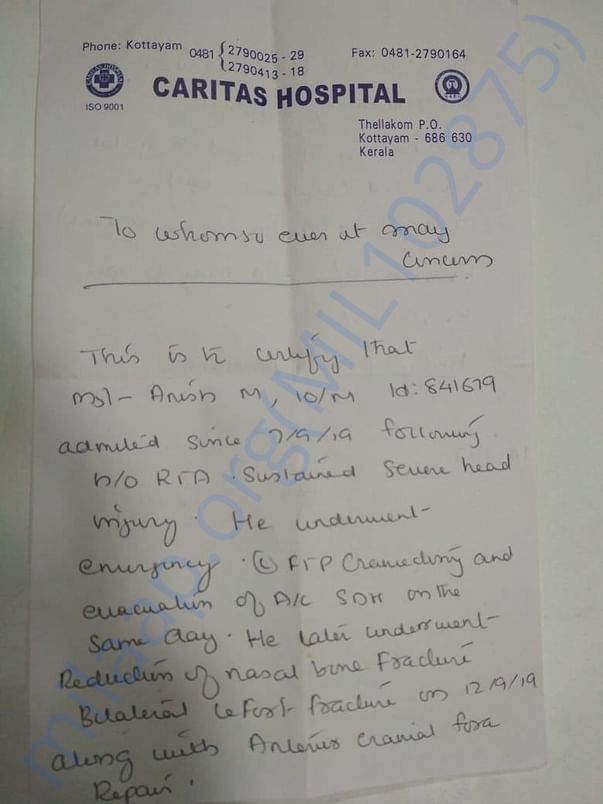 Phone: Kottayam 0481 { 2790025 - 29
2790413 - 18
Fax: 0481-2790164
CARITAS HOSPITAL
ISO 9001
Thellakom P.O.
Kottayam - 686 630
Kerala
To whomso ever at may
concern
This is to certify that
Mst- Anish M, 10/M Id: 841679
admitted since 7/9/19 following
h/o RTA. Sustained severe head
injury. He underwent
emergency (L) FTP Craniectomy and
evacuation of A/C SDH on the
same day. He later underwent
Reduction of nasal bone fracture
Bilateral Lefort fracture on 12/9/19
along with Anterior cranial fossa
Repair.
milaap.org(MIL102875)